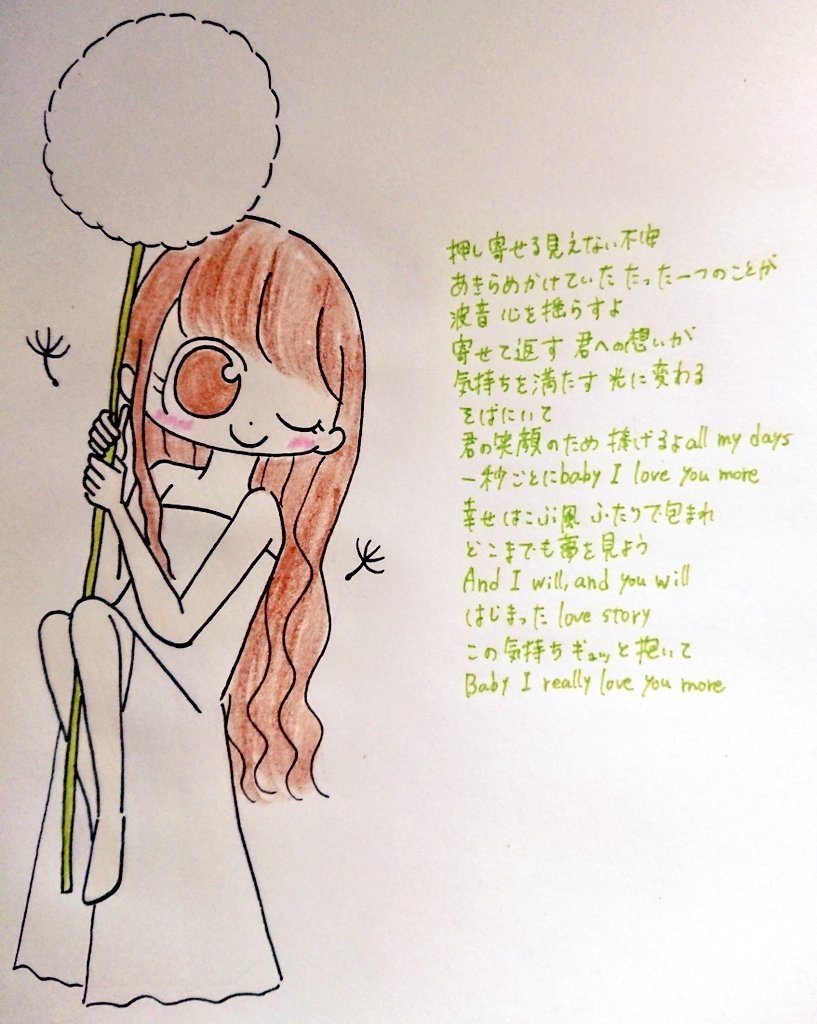 押し寄せる見えない不安
あきらめかけていた たった一つのことが
波音 心を揺らすよ
寄せて返す 君への想いが
気持ちを満たす 光に変わる
そばにいて
君の笑顔のため 捧げるよall my days
一秒ごとにbaby I love you more
幸せはこぶ風 ふたりで包まれ
どこまでも夢を見よう
And I will, and you will
はじまった love story
この気持ち ギュッと抱いて
Baby I really love you more